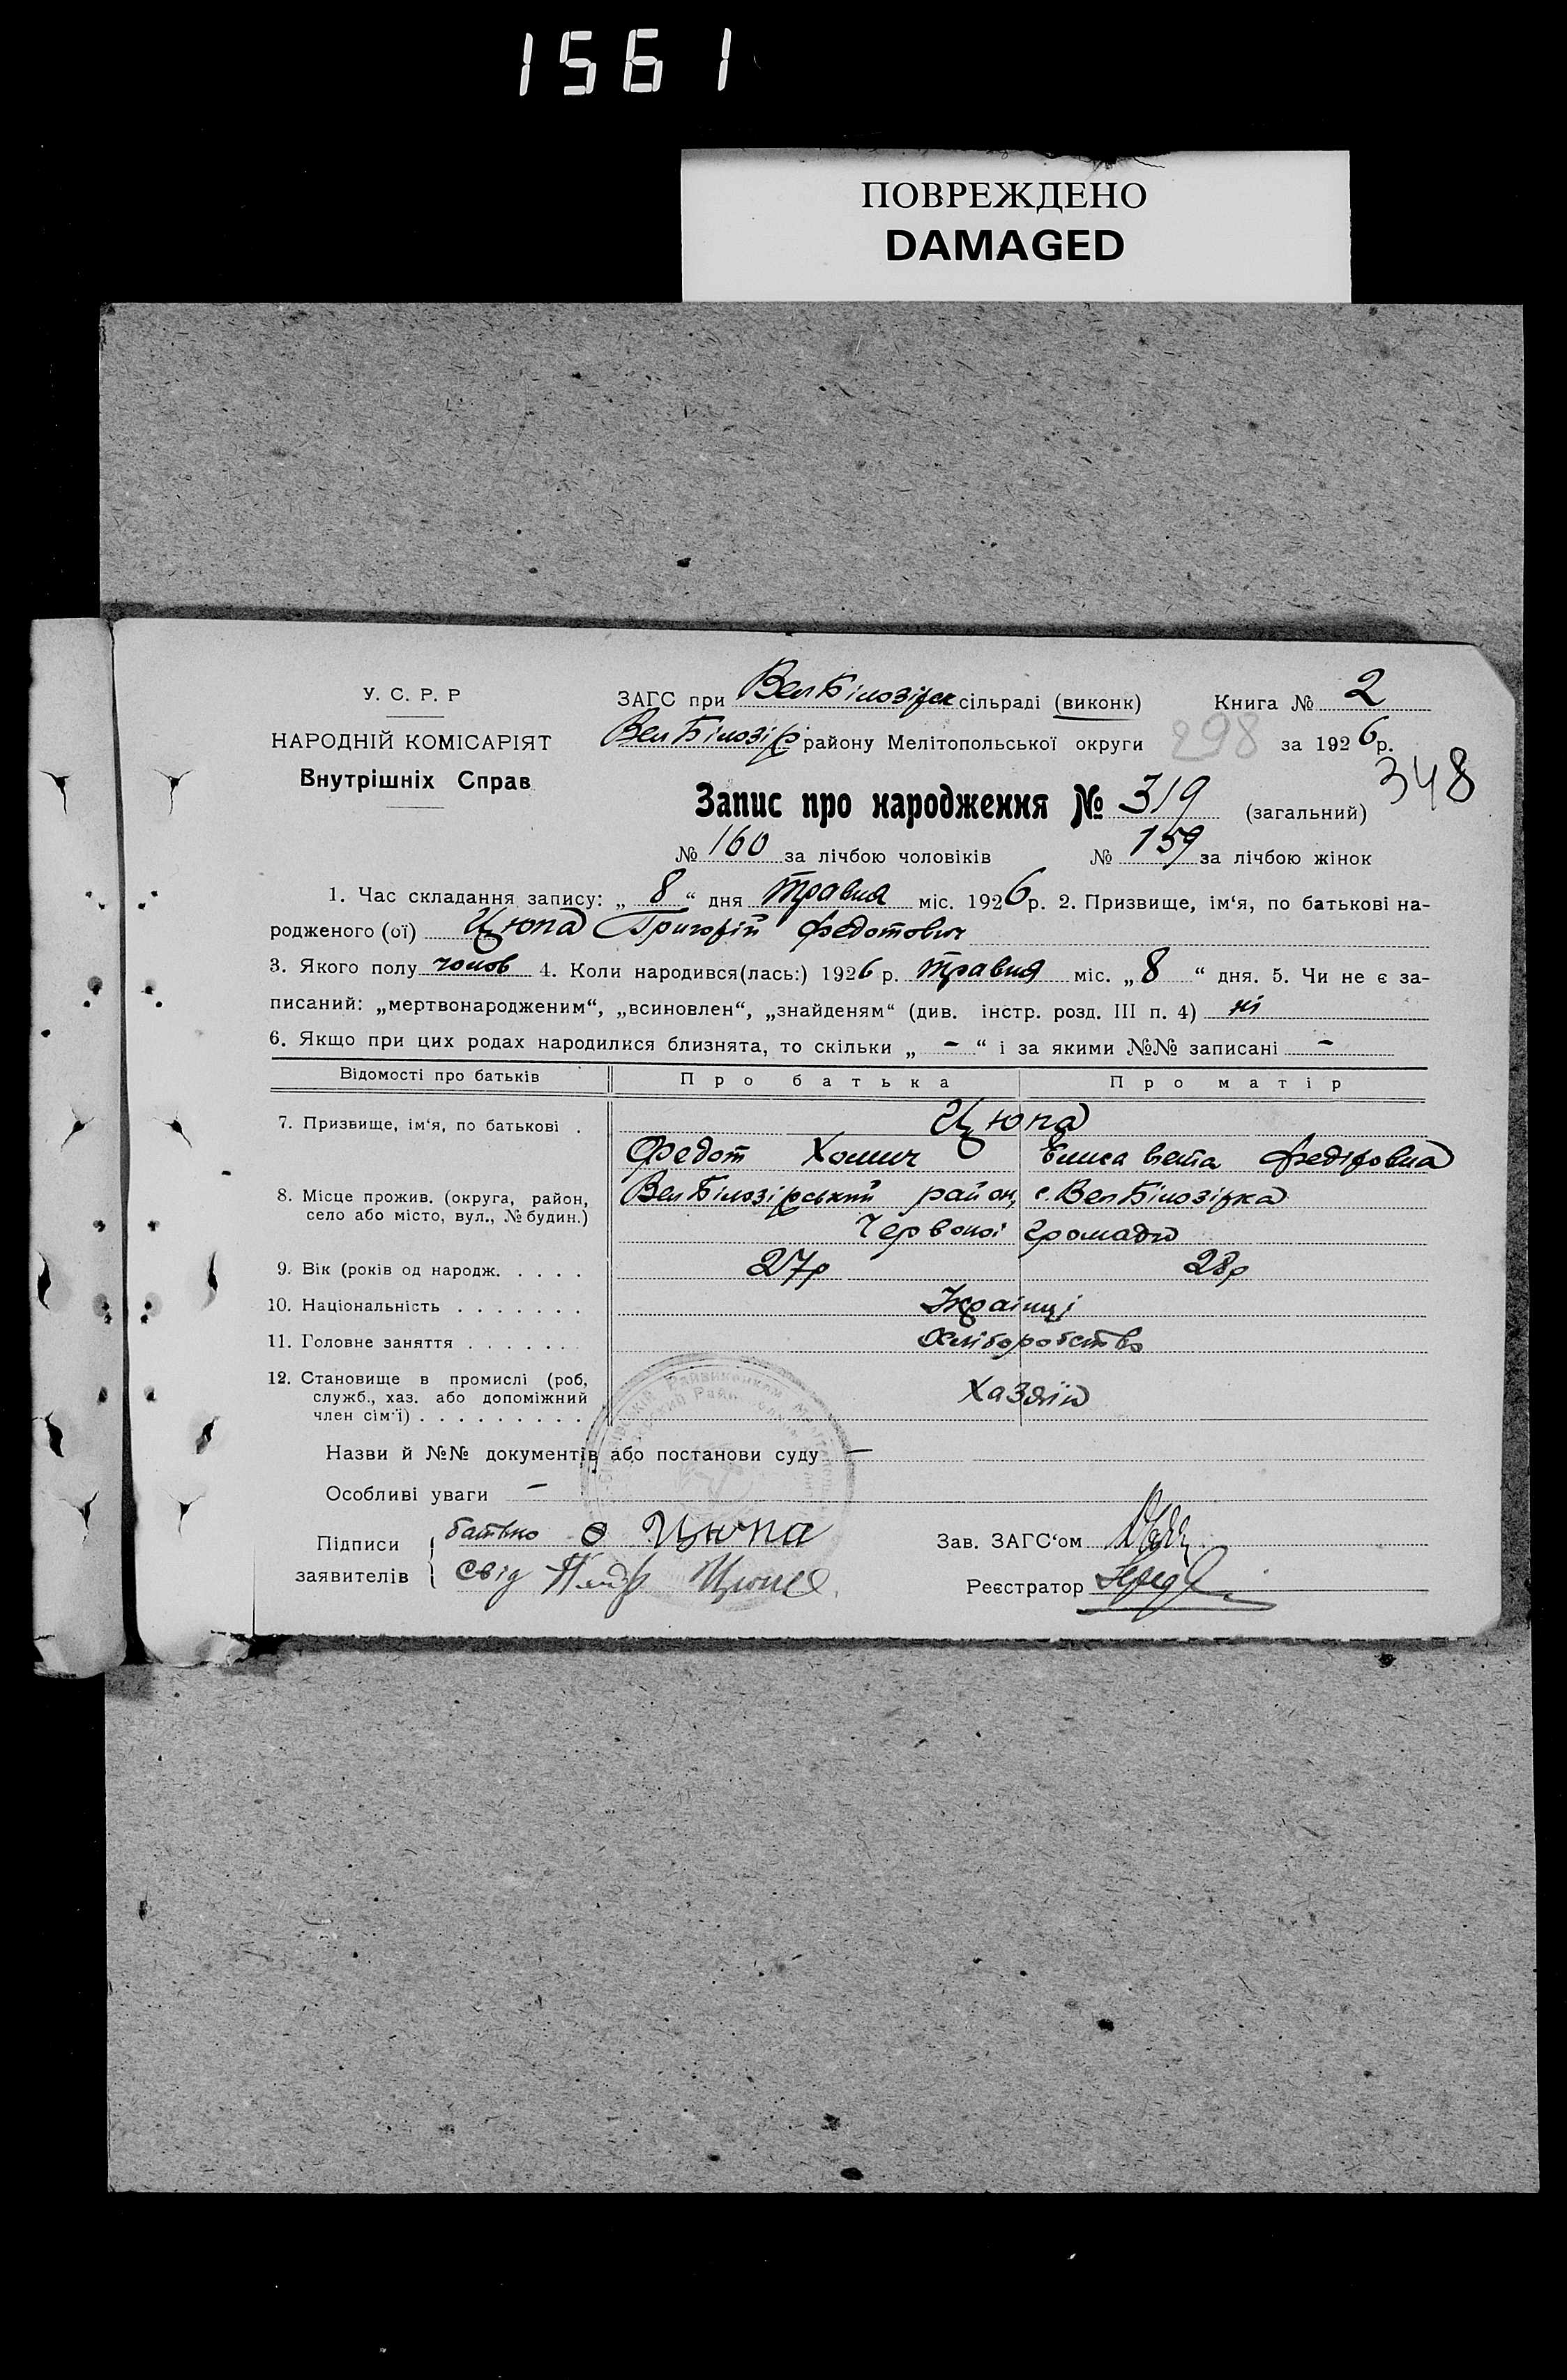 1561
ПОВРЕЖДЕНО
DAMAGED
У. С. Р. Р
НАРОДНІЙ КОМІСАРІЯТ
Внутрішніх Справ
ЗАГС при Вел Білозірск сільраді (виконк) Книга № 2
Вел Білозір району Мелітопольської округи 298 за 1926 р.
348
Запис про народження № 319 (загальний)
№ 160 за лічбою чоловіків № 159 за лічбою жінок
1. Час складання запису: „ 8 “ дня травня міс. 1926 р. 2. Призвище, ім‘я, по батькові на-
родженого (ої) Цюпа Григорій Федотович
3. Якого полу чолов 4. Коли народився(лась:) 1926 р. травня міс. „ 8 “ дня. 5. Чи не є за-
писаний: „мертвонародженим“, „всиновлен“, „знайденям“ (див. інстр. розд. III п. 4) ні
6. Якщо при цих родах народилися близнята, то скільки „ - “ і за якими №№ записані -
Відомості про батьків Про батька Про матір
7. Призвище, ім‘я, по батькові . Цюпа
Федот Хомич Елисавета Федіровна
8. Місце прожив. (округа, район, село або місто, вул., № будин.) Вел Білозірський район, с. Вел Білозірка
Червоної громади
9. Вік (років од народж. . . . . 27р 28р
10. Національність . . . . . . . Українці
11. Головне заняття . . . . . . . Хліборобство
12. Становище в промислі (роб,
служб., хаз. або допоміжний
член сім‘ї) . . . . . . . . . Хазяїн
Назви й №№ документів або постанови суду —
Особливі уваги —
Підписи заявителів
батько Ф Цюпа
Свід Цюпа
Зав. ЗАГС‘ом
Реєстратор